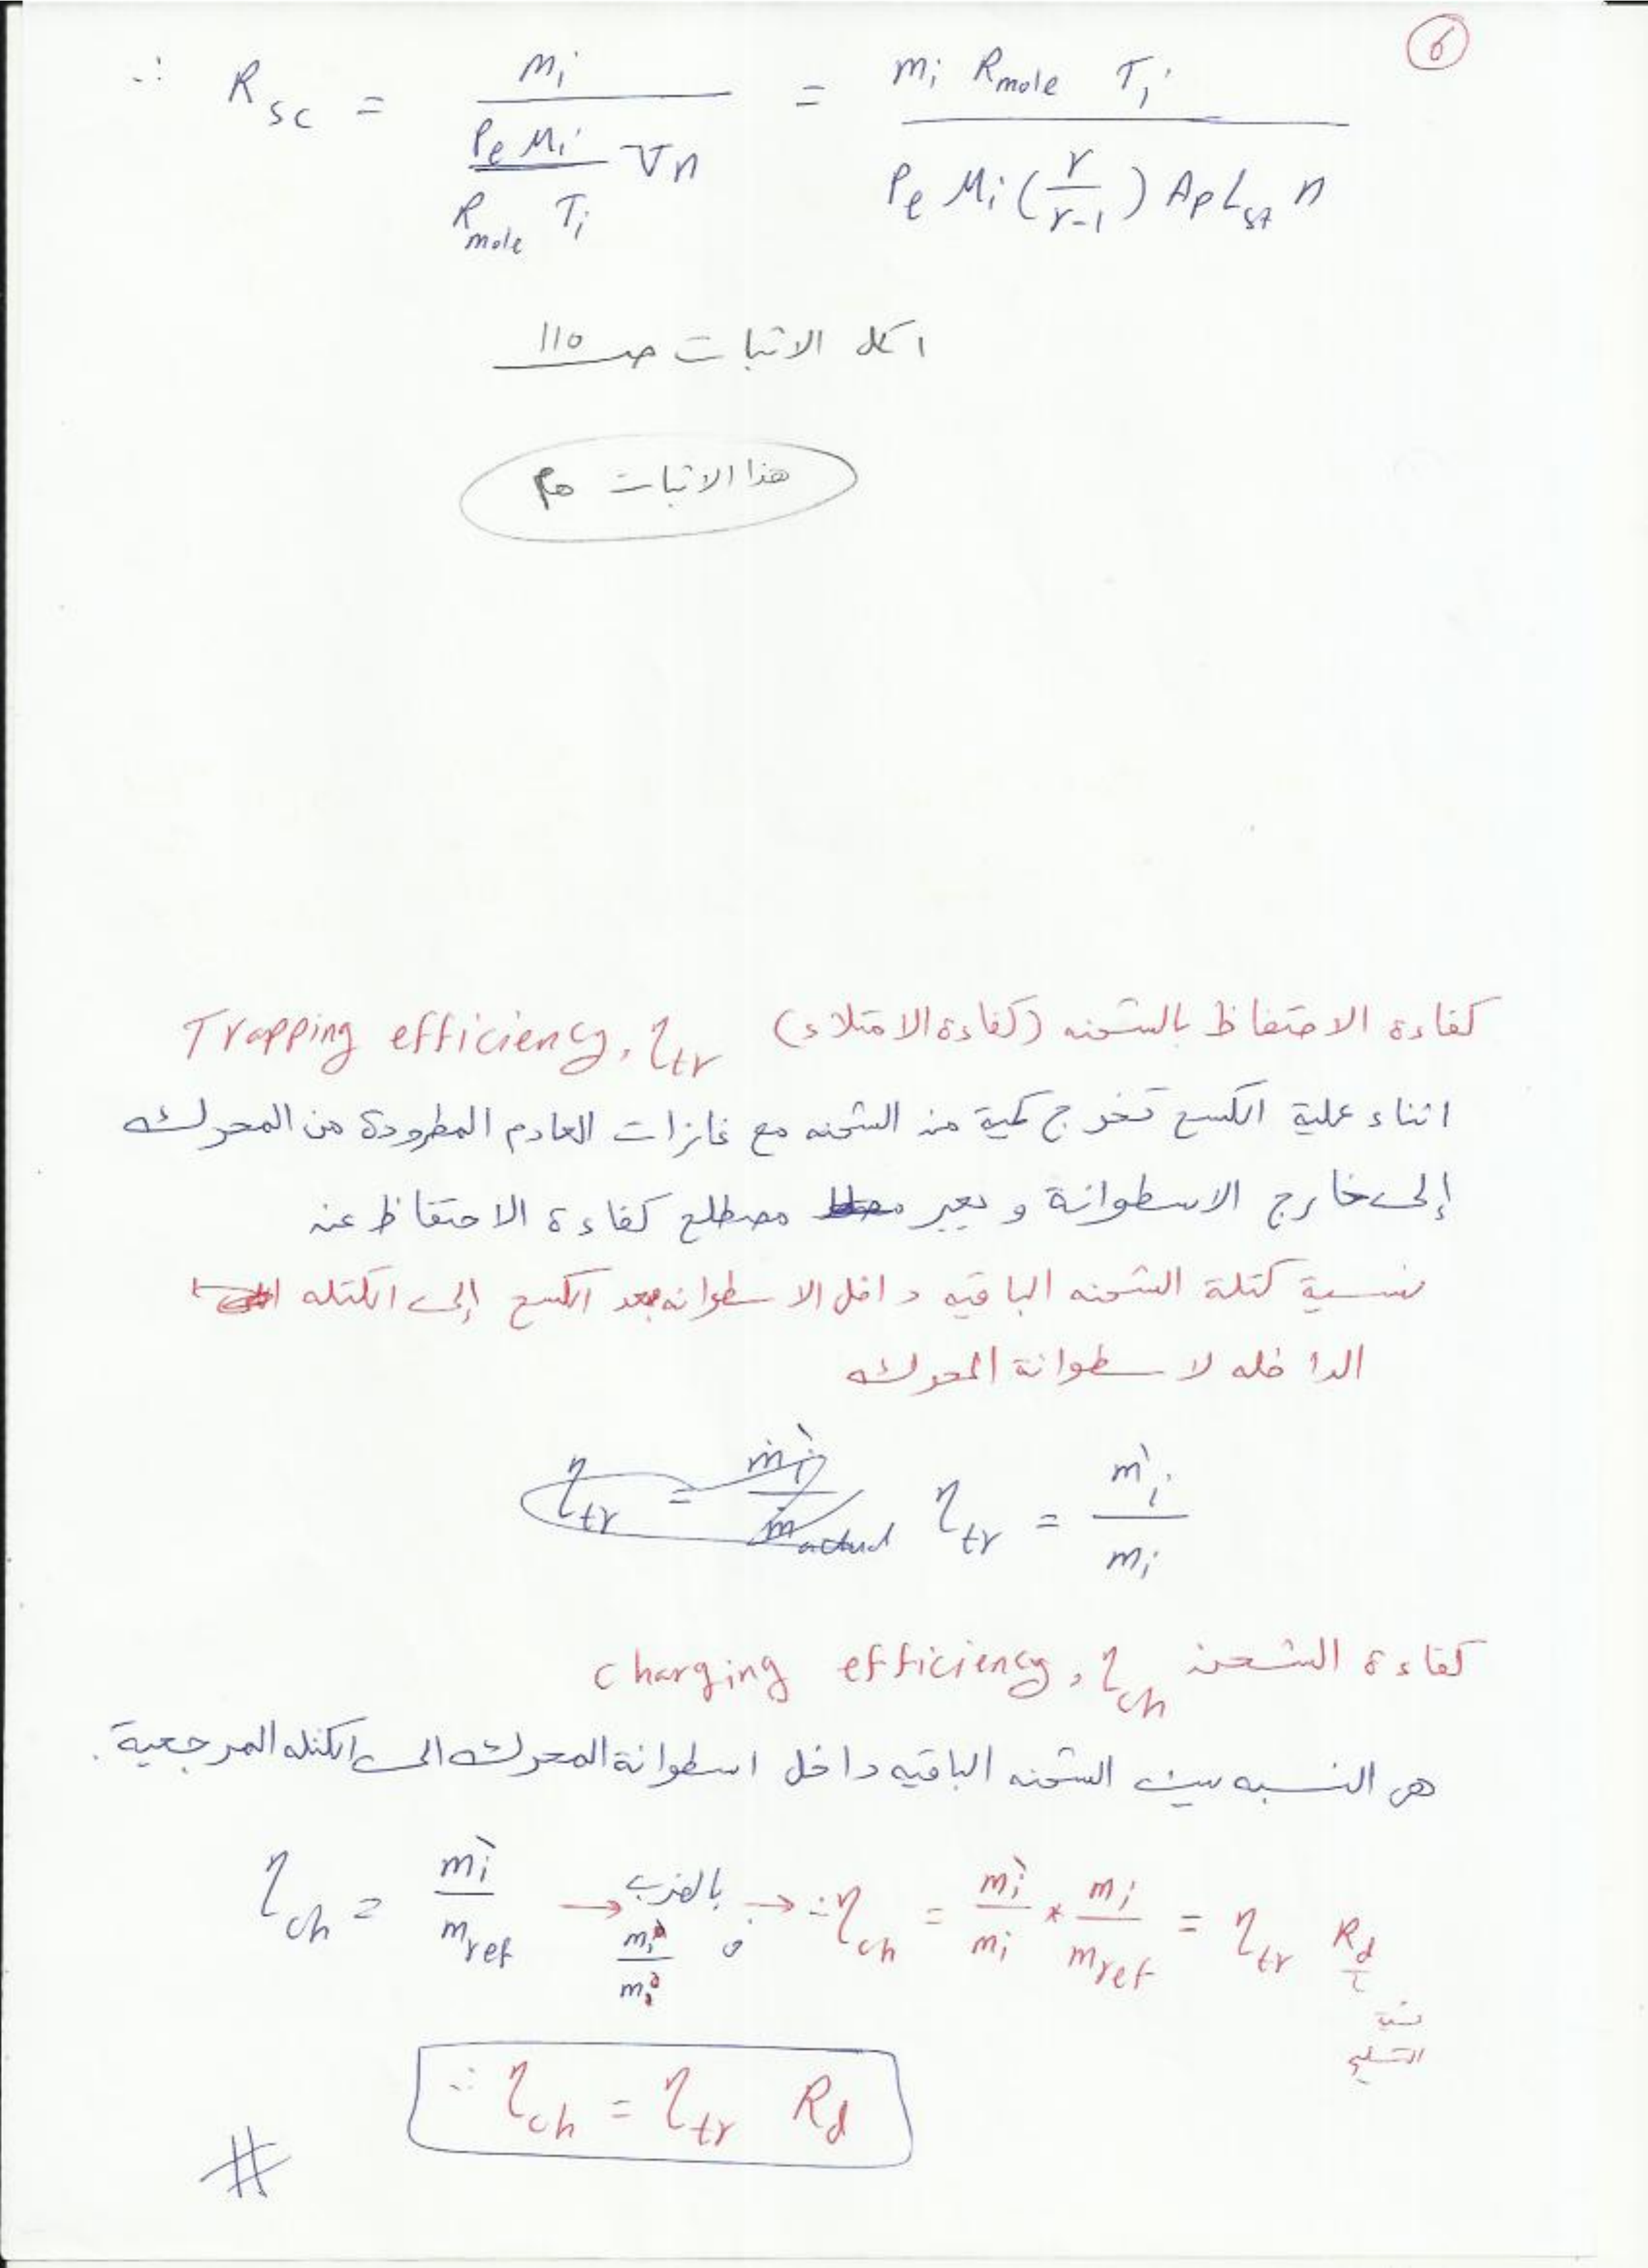 6
∴ R_sc = m_i / ((P_e M_i / R_mole T_i) V n) = m_i R_mole T_i / (P_e M_i (r / r-1) A_P L_st n)
اكمل الاثبات صـ 110
هذا الاثبات هام
كفاءة الاحتفاظ بالشحنه (كفاءة الامتلاء) Trapping efficiency, η_tr
اثناء عملية الكسح تخرج كمية من الشحنه مع غازات العادم المطرودة من المحرك
إلى خارج الاسطوانة و يعبر مصطلح كفاءة الاحتفاظ عن
نسبة كتلة الشحنه الباقيه داخل الاسطوانه بعد الكسح إلى الكتله
الداخله لاسطوانة المحرك
η_tr = ṁ_i` / ṁ_actual η_tr = m`_i / m_i
كفاءة الشحن charging efficiency, η_ch
هى النسبه بين الشحنه الباقيه داخل اسطوانة المحرك الى الكتله المرجعية.
η_ch = m`_i / m_ref → بالضرب فى m_i / m_i → ∴ η_ch = m`_i / m_i * m_i / m_ref = η_tr R_d
نسبة
التسليم
∴ η_ch = η_tr R_d
#